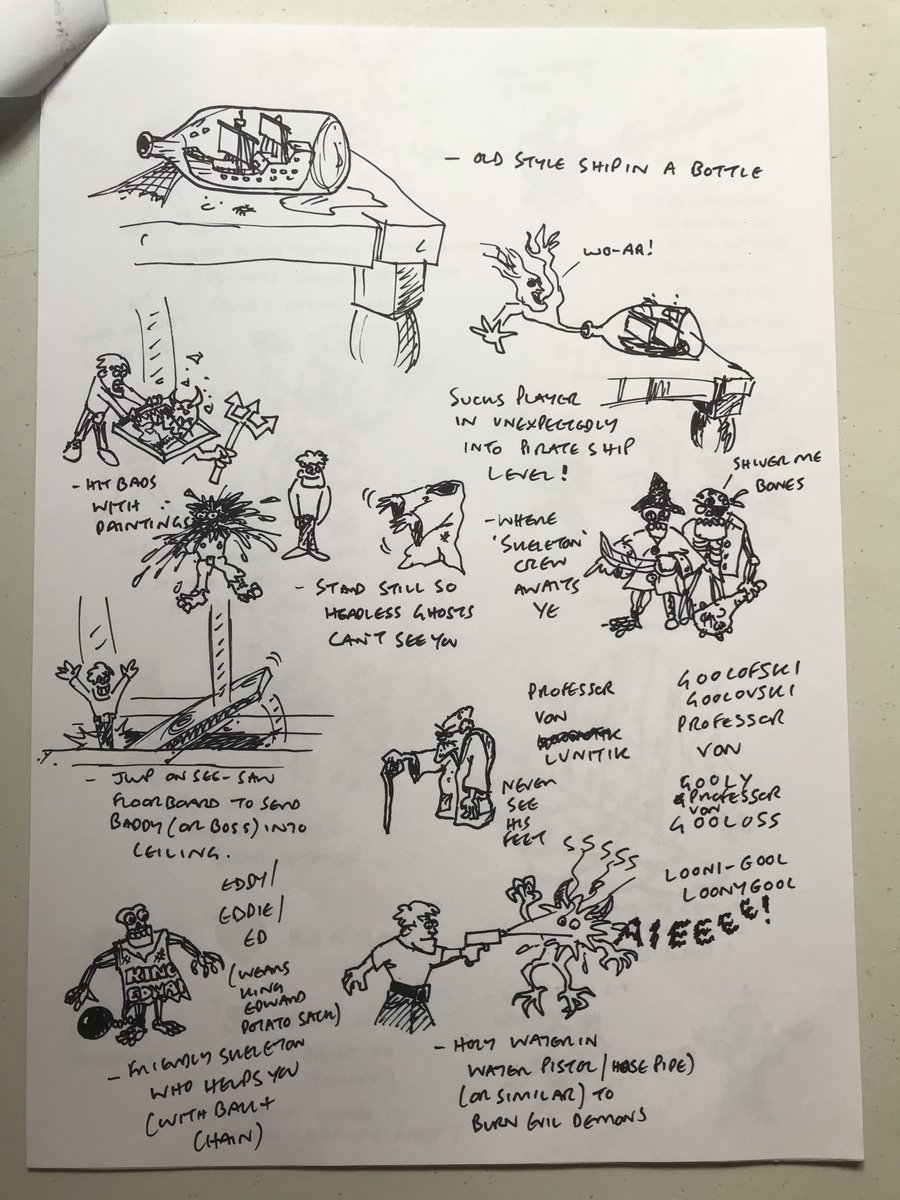 - OLD STYLE SHIP IN A BOTTLE
WO-AR!
SUCKS PLAYER
IN UNEXPECTEDLY
INTO PIRATE SHIP
LEVEL!
- HIT BADS
WITH
PAINTINGS
- STAND STILL SO
HEADLESS GHOSTS
CAN'T SEE YOU
- WHERE
'SKELETON'
CREW
AWAITS
YE
SHIVER ME
BONES
- JUMP ON SEE-SAW
FLOORBOARD TO SEND
BADDY (OR BOSS) INTO
CEILING.
PROFESSOR
VON
LUNITIK
NEVER
SEE
HIS
FEET
GOOLOFSKI
GOOLOVSKI
PROFESSOR
VON
GOOLY
PROFESSOR
VON
GOOLOSS
LOONI-GOOL
LOONYGOOL
EDDY/
EDDIE/
ED
(WEARS
KING
EDWARD
POTATO SACK)
KING
EDWA
- FRIENDLY SKELETON
WHO HELPS YOU
(WITH BALL +
CHAIN)
SSSSS
AIEEEE!
- HOLY WATER IN
WATER PISTOL/HOSE PIPE)
(OR SIMILAR) TO
BURN EVIL DEMONS